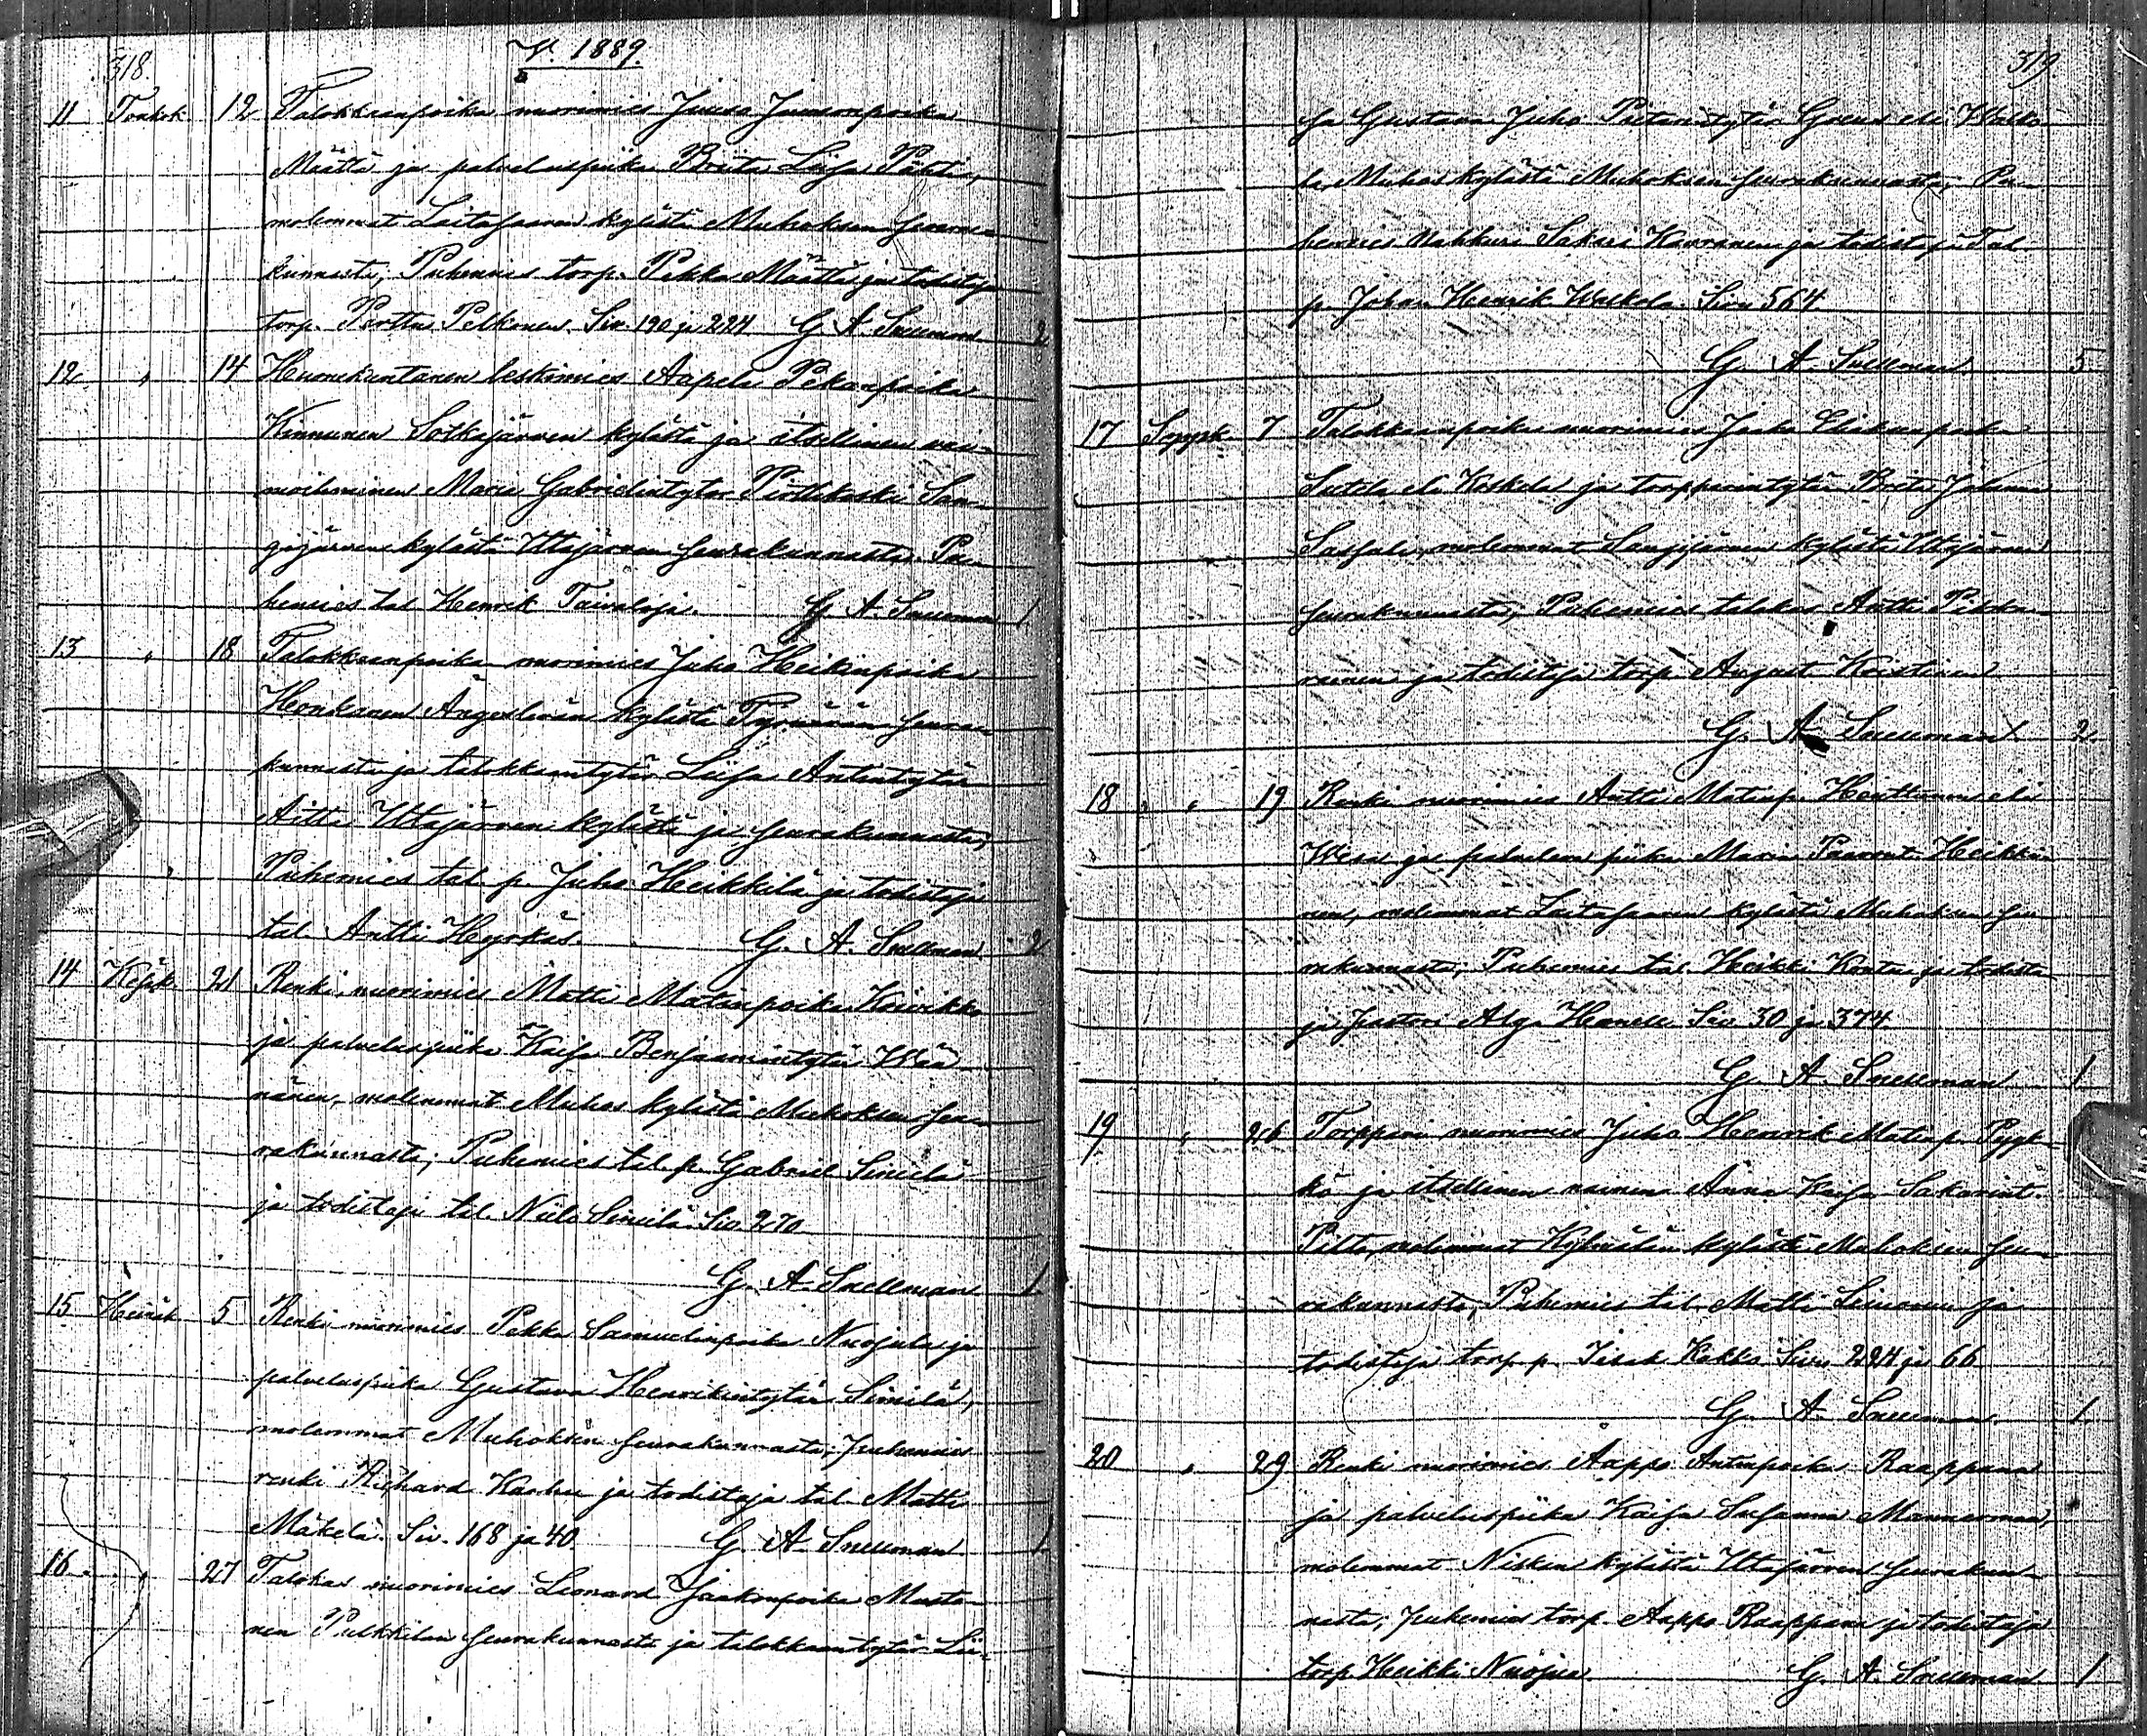 318. V. 1889.
11 Toukok 12 Talokkaanpoika nuorimies Juuso Juusonpoika
Määttä ja palveluspiika Briita Liisa Pähti,
molemmat Laitasaaren kylästä Muhoksen seura-
kunnasta; Puhemies torp. Pekka Määttä ja todistaja
torp. Perttu Pelkonen. Siv. 190 ja 224 G. A. Snellman 2
12 " 14 Huonekuntanen leskimies Aapeli Pekanpoika
Kinnunen Sotkajärven kylästä ja itsellinen vai-
moihminen Maria Gabrielintytär Pirttikoski San-
gijärven kylästä Utajärven seurakunnasta. Pu-
hemies tal. Henrik Taivaloja. G. A. Snellman 1
13 " 18 Talokkaanpoika nuorimies Juho Heikinpoika
Honkanen Ängeslevän kylästä Tyrnävän seura-
kunnasta ja talokkaantytär Liisa Antintytär
Aitta Utajärven kylästä ja seurakunnasta;
Puhemies tal. p. Juho Heikkilä ja todistaja
tal. Antti Hyrkäs. G. A. Snellman 2
14 Kesäk 21 Renki, nuorimies Matti Matinpoika Koivikko
ja palveluspiika Kaisa Benjaminintytär Wää-
nänen, molemmat Muhos kylästä Muhoksen seu-
rakunnasta; Puhemies tal. p. Gabriel Similä
ja todistaja tal. Niilo Similä Siv. 270
G. A. Snellman 1
15 Heinäk 5 Renki nuorimies Pekka Samuelinpoika Nuojula ja
palveluspiika Gustava Henrikintytär Similä,
molemmat Muhoksen seurakunnasta; puhemies
renki Richard Karhu ja todistaja tal. Matti
Mäkelä. Siv. 168 ja 40 G. A. Snellman 1
16 " 27 Talokas nuorimies Leonard Jaakonpoika Musto-
nen Pulkkilan seurakunnasta ja talokkaantytär Lii-
319
sa Gustava Juho Pietarintytär eli Walko-
la, Muhoskylästä Muhoksen seurakunnasta; Pu-
hemies Nahkuri Sakari Karvonen ja todistaja Tal.
p. Johan Henrik Walkola. Sivu 564.
G. A. Snellman 5
17 Syysk 7 Talokkaanpoika nuorimies Jaako Eliaanpoika
Sutela eli Koskela ja torpparintytär Brita Johanna
Sassali, molemmat Sangijärven kylästä Utajärven
seurakunnasta; Puhemies talokas Antti Pikka-
rainen ja todistaja torp. August Koistinen
G. A. Snellman 2
18 " " 19 Renki nuorimies Antti Matinp. Huttunen eli
Wesa ja palvelus piika Maria Paavont. Heikki-
nen, molemmat Laitasaaren kylästä Muhoksen seu-
rakunnasta; Puhemies tal. Heikki Konttu ja todista-
ja pastori Alg. Siv. 30 ja 374
G. A. Snellman 1
19 " 26 Torppari nuorimies Juho Henrik Matinp. Pyyk-
kö ja itsellinen nainen Anna Kaisa Sakarint.
Piltto, molemmat Kylmälän kylästä Muhoksen seu-
rakunnasta; Puhemies tal. Matti Leinonen ja
todistaja torp. p. Iisak Kokko Sivu 224 ja 66
G. A. Snellman 1
20 " 29 Renki nuorimies Aappo Antinpoika Raappana
ja palveluspiika Kaisa Susanna Mannermaa,
molemmat Niskan kylästä Utajärven seurakun-
nasta; puhemies torp. Aappo Raappana ja todistaja
torp. Heikki Nuojua. G. A. Snellman 1